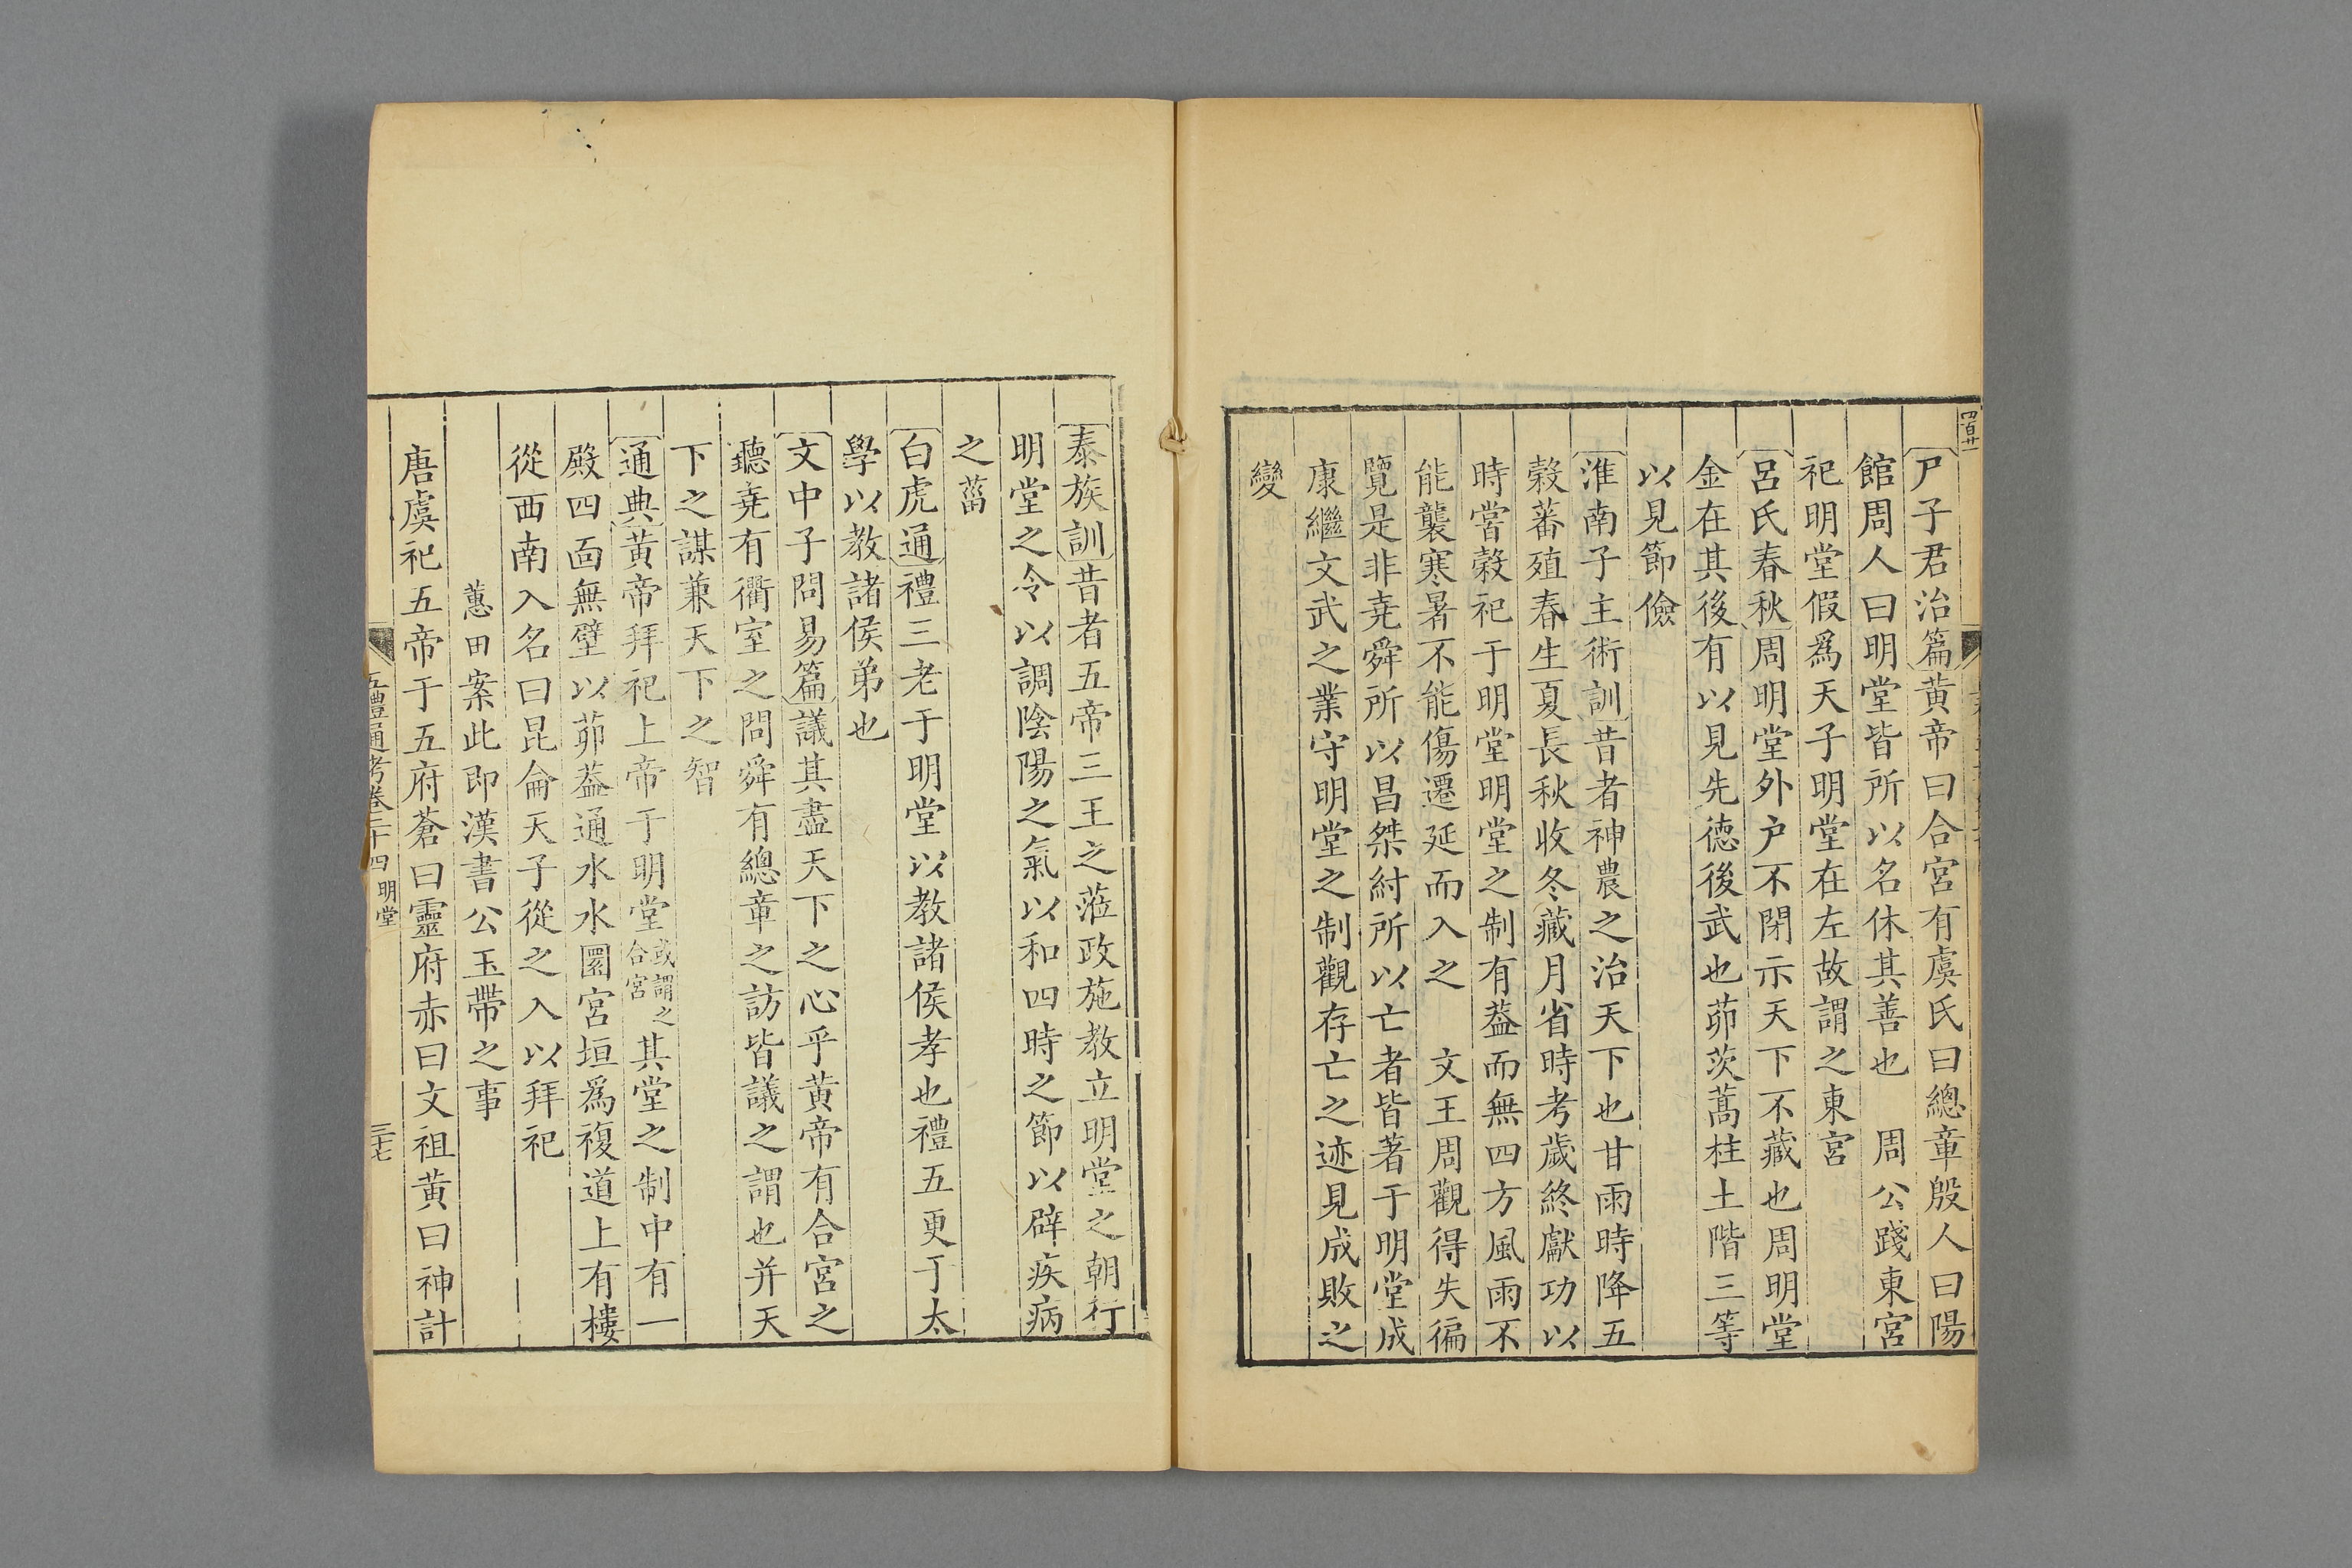 四百廿一
尸子君治篇黄帝曰合宮有虞氏曰總章殷人曰陽
館周人曰明堂皆所以名休其善也　周公踐東宮
祀明堂假爲天子明堂在左故謂之東宮
呂氏春秋周明堂外户不閉示天下不藏也周明堂
金在其後有以見先德後武也茆茨蒿柱土階三等
以見節儉
淮南子主術訓昔者神農之治天下也甘雨時降五
穀蕃殖春生夏長秋收冬藏月省時考歲終獻功以
時嘗穀祀于明堂明堂之制有葢而無四方風雨不
能襲寒暑不能傷遷延而入之　文王周觀得失徧
覽是非堯舜所以昌桀紂所以亡者皆著于明堂成
康繼文武之業守明堂之制觀存亡之迹見成敗之
變
泰族訓昔者五帝三王之蒞政施教立明堂之朝行
明堂之令以調陰陽之氣以和四時之節以辟疾病
之菑
白虎通禮三老于明堂以教諸侯孝也禮五更于太
學以教諸侯弟也
文中子問易篇議其盡天下之心乎黄帝有合宮之
聽堯有衢室之問舜有總章之訪皆議之謂也并天
下之謀兼天下之智
通典黄帝拜祀上帝于明堂或謂之合宮其堂之制中有一
殿四面無壁以茆葢通水水圜宮垣爲複道上有樓
從西南入名曰昆侖天子從之入以拜祀
蕙田案此即漢書公玉帶之事
唐虞祀五帝于五府蒼曰靈府赤曰文祖黄曰神計
五禮通考卷二十四 明堂 三七